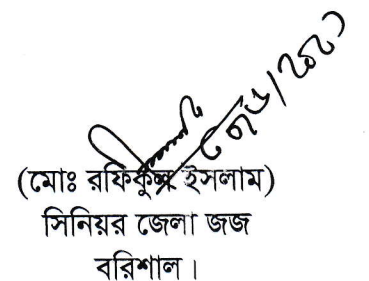 (মোঃ রফিকুল ইসলাম)
সিনিয়র জেলা জজ
বরিশাল।